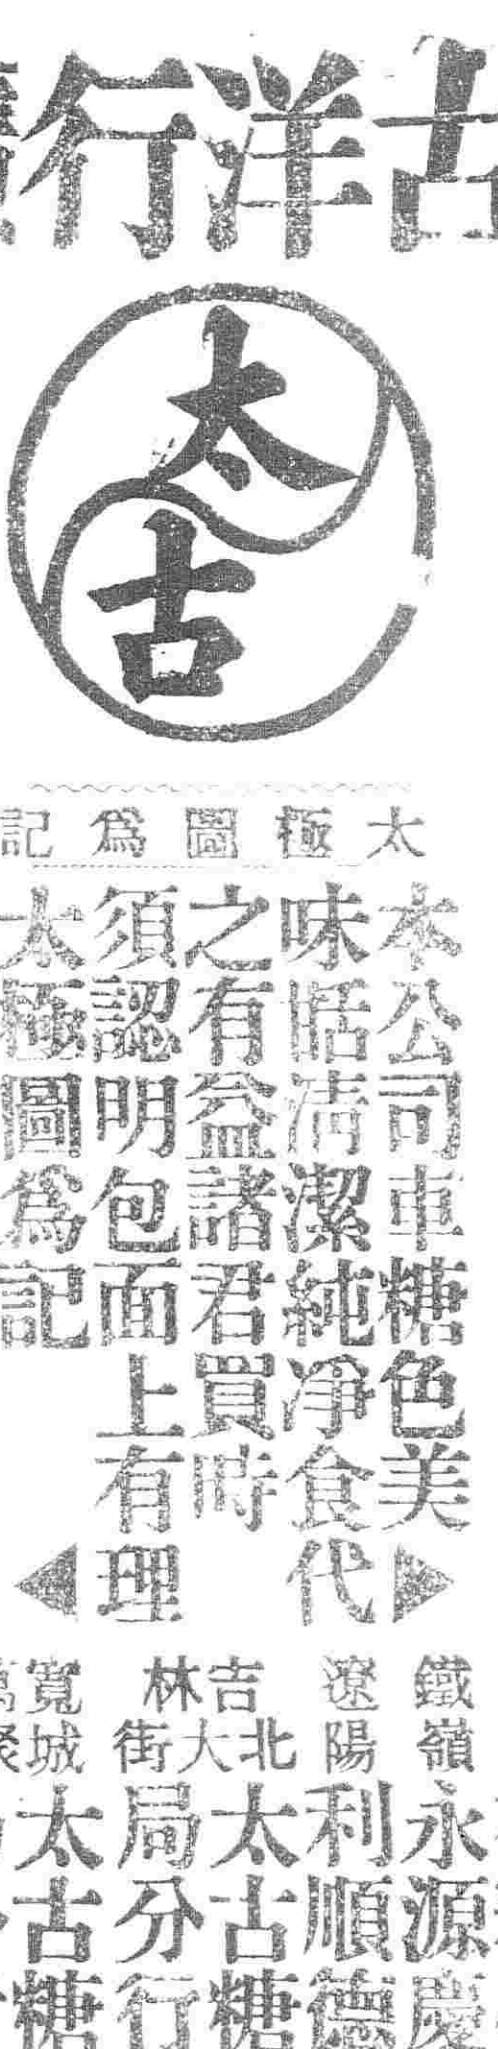 古洋行
太
古
太極圖爲記
本公司車糖色美
味甛清潔純淨食
之有益諸君買時
須認明包面上有
太極圖爲記
代
理
鐵嶺
永源慶
遼陽
利順德
吉林北大街
太古糖
局分行
寬城
太古糖